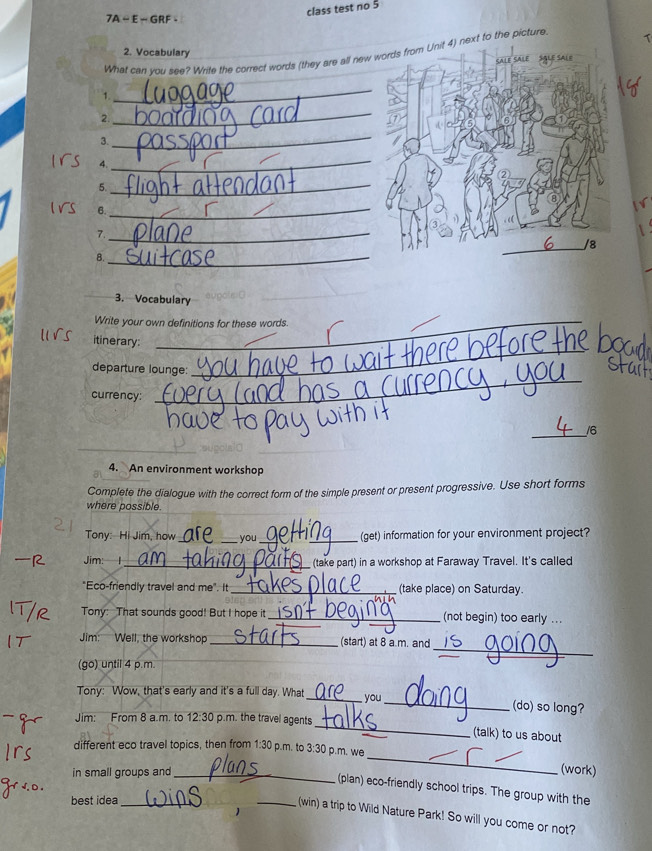 7A - E - GRF -
class test no 5
2. Vocabulary
What can you see? Write the correct words (they are all new words from Unit 4) next to the picture.
SALE SALE SALE SALE
1. luggage
2. boarding card
3. passport
1rs 4. – r –
5. flight attendant
1rs 6. – r –
7. plane
8. suitcase
6 /8
3. Vocabulary
Write your own definitions for these words.
11rs itinerary: – r –
departure lounge: you have to wait there before the board
start
currency: Every land has a currency, you
have to pay with it
4 /6
4. An environment workshop
Complete the dialogue with the correct form of the simple present or present progressive. Use short forms
where possible.
Tony: Hi Jim, how are you getting (get) information for your environment project?
-R Jim: I am tahing parts (take part) in a workshop at Faraway Travel. It's called
"Eco-friendly travel and me". It takes place (take place) on Saturday.
1T/R Tony: That sounds good! But I hope it isn't begining nin (not begin) too early ...
1T Jim: Well, the workshop starts (start) at 8 a.m. and is going
(go) until 4 p.m.
Tony: Wow, that's early and it's a full day. What are you doing (do) so long?
-gr Jim: From 8 a.m. to 12:30 p.m. the travel agents talks (talk) to us about
1rs different eco travel topics, then from 1:30 p.m. to 3:30 p.m. we – r – (work)
gr s.o. in small groups and plans (plan) eco-friendly school trips. The group with the
best idea wins, (win) a trip to Wild Nature Park! So will you come or not?